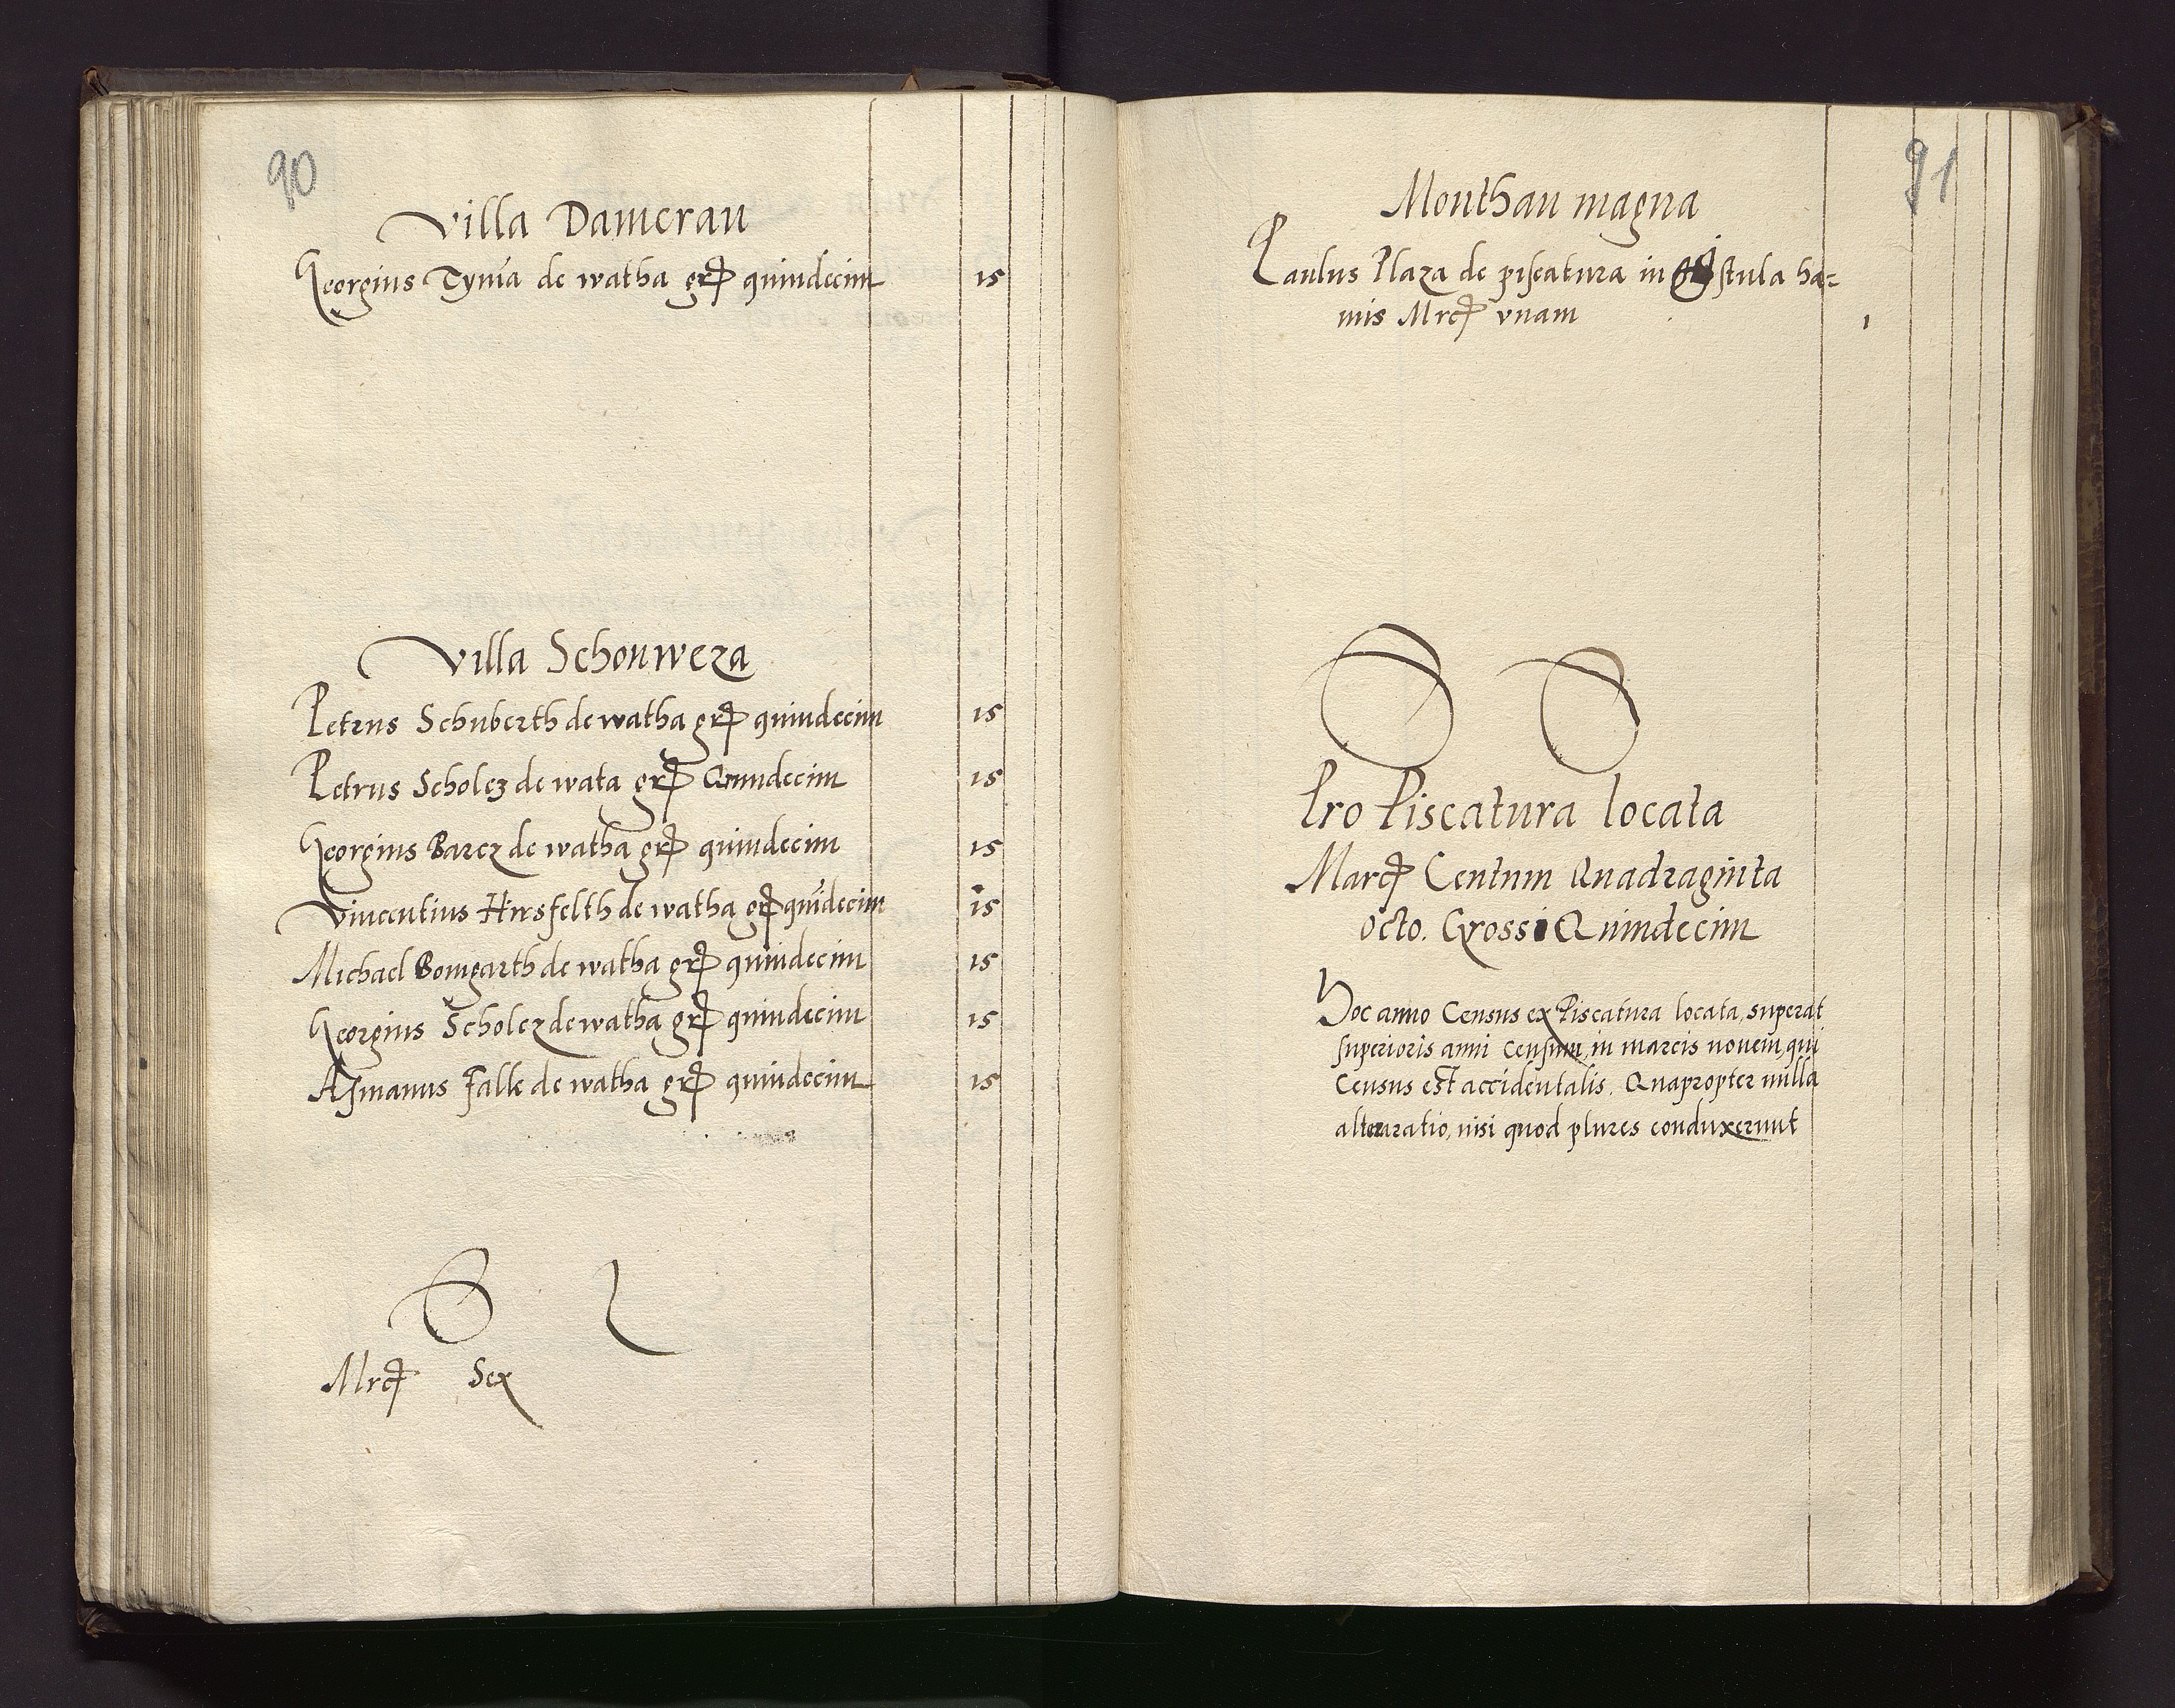 90
Villa Damerau
Georgius Tynia de watha gr̃ quindecim 15
Villa Schonweza
Petrus Schuberth de watha gr̃ quindecim 15
Petrus Scholcz de wata gr̃ Quindecim 15
Georgius Barcz de watha gr̃ quindecim 15
Vincentius Hirsfelth de watha gr̃ quīdecim 15
Michael Bomgarth de watha gr̃ quindecim 15
Georgius Scholcz de watha gr̃ quindecim 15
Asmanus Falk de watha gr̃ quindecim 15
Mrc̃ Sex
91
Monthau magna
Paulus Plaza de piscatura in stula ha=
mis Mrc̃ vnam 1
Pro Piscatura locata
Marc̃ Centum Quadraginta
octo. Grossi Quindecim
Hoc anno Census ex Piscatura locata, superat
superioris anni Censum, in marcis novem, qui
Census est accidentalis. Quapropter nulla
alteraratio, nisi quod plures conduxerunt